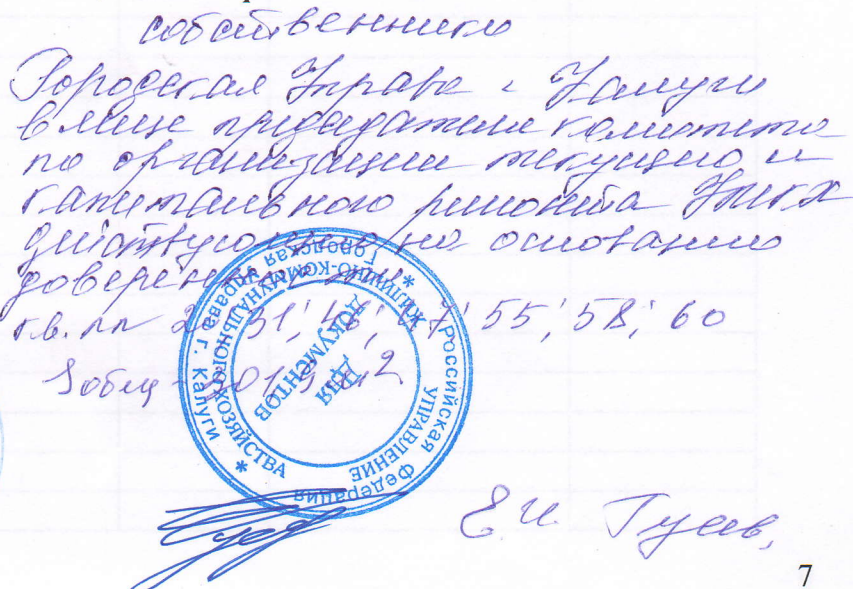 собственники
Городская Управа г. Калуги
в лице председателя комитета
по организации текущего и
капитального ремонта УЖКХ
действующего на основании
доверенности
кв. 31; 47; 55; 58; 60
Sобщ м2
Российская Федерация * Городская Управа г. Калуги *
УПРАВЛЕНИЕ ЖИЛИЩНО-КОММУНАЛЬНОГО ХОЗЯЙСТВА
ДЛЯ
ДОКУМЕНТОВ
Е.И.
7